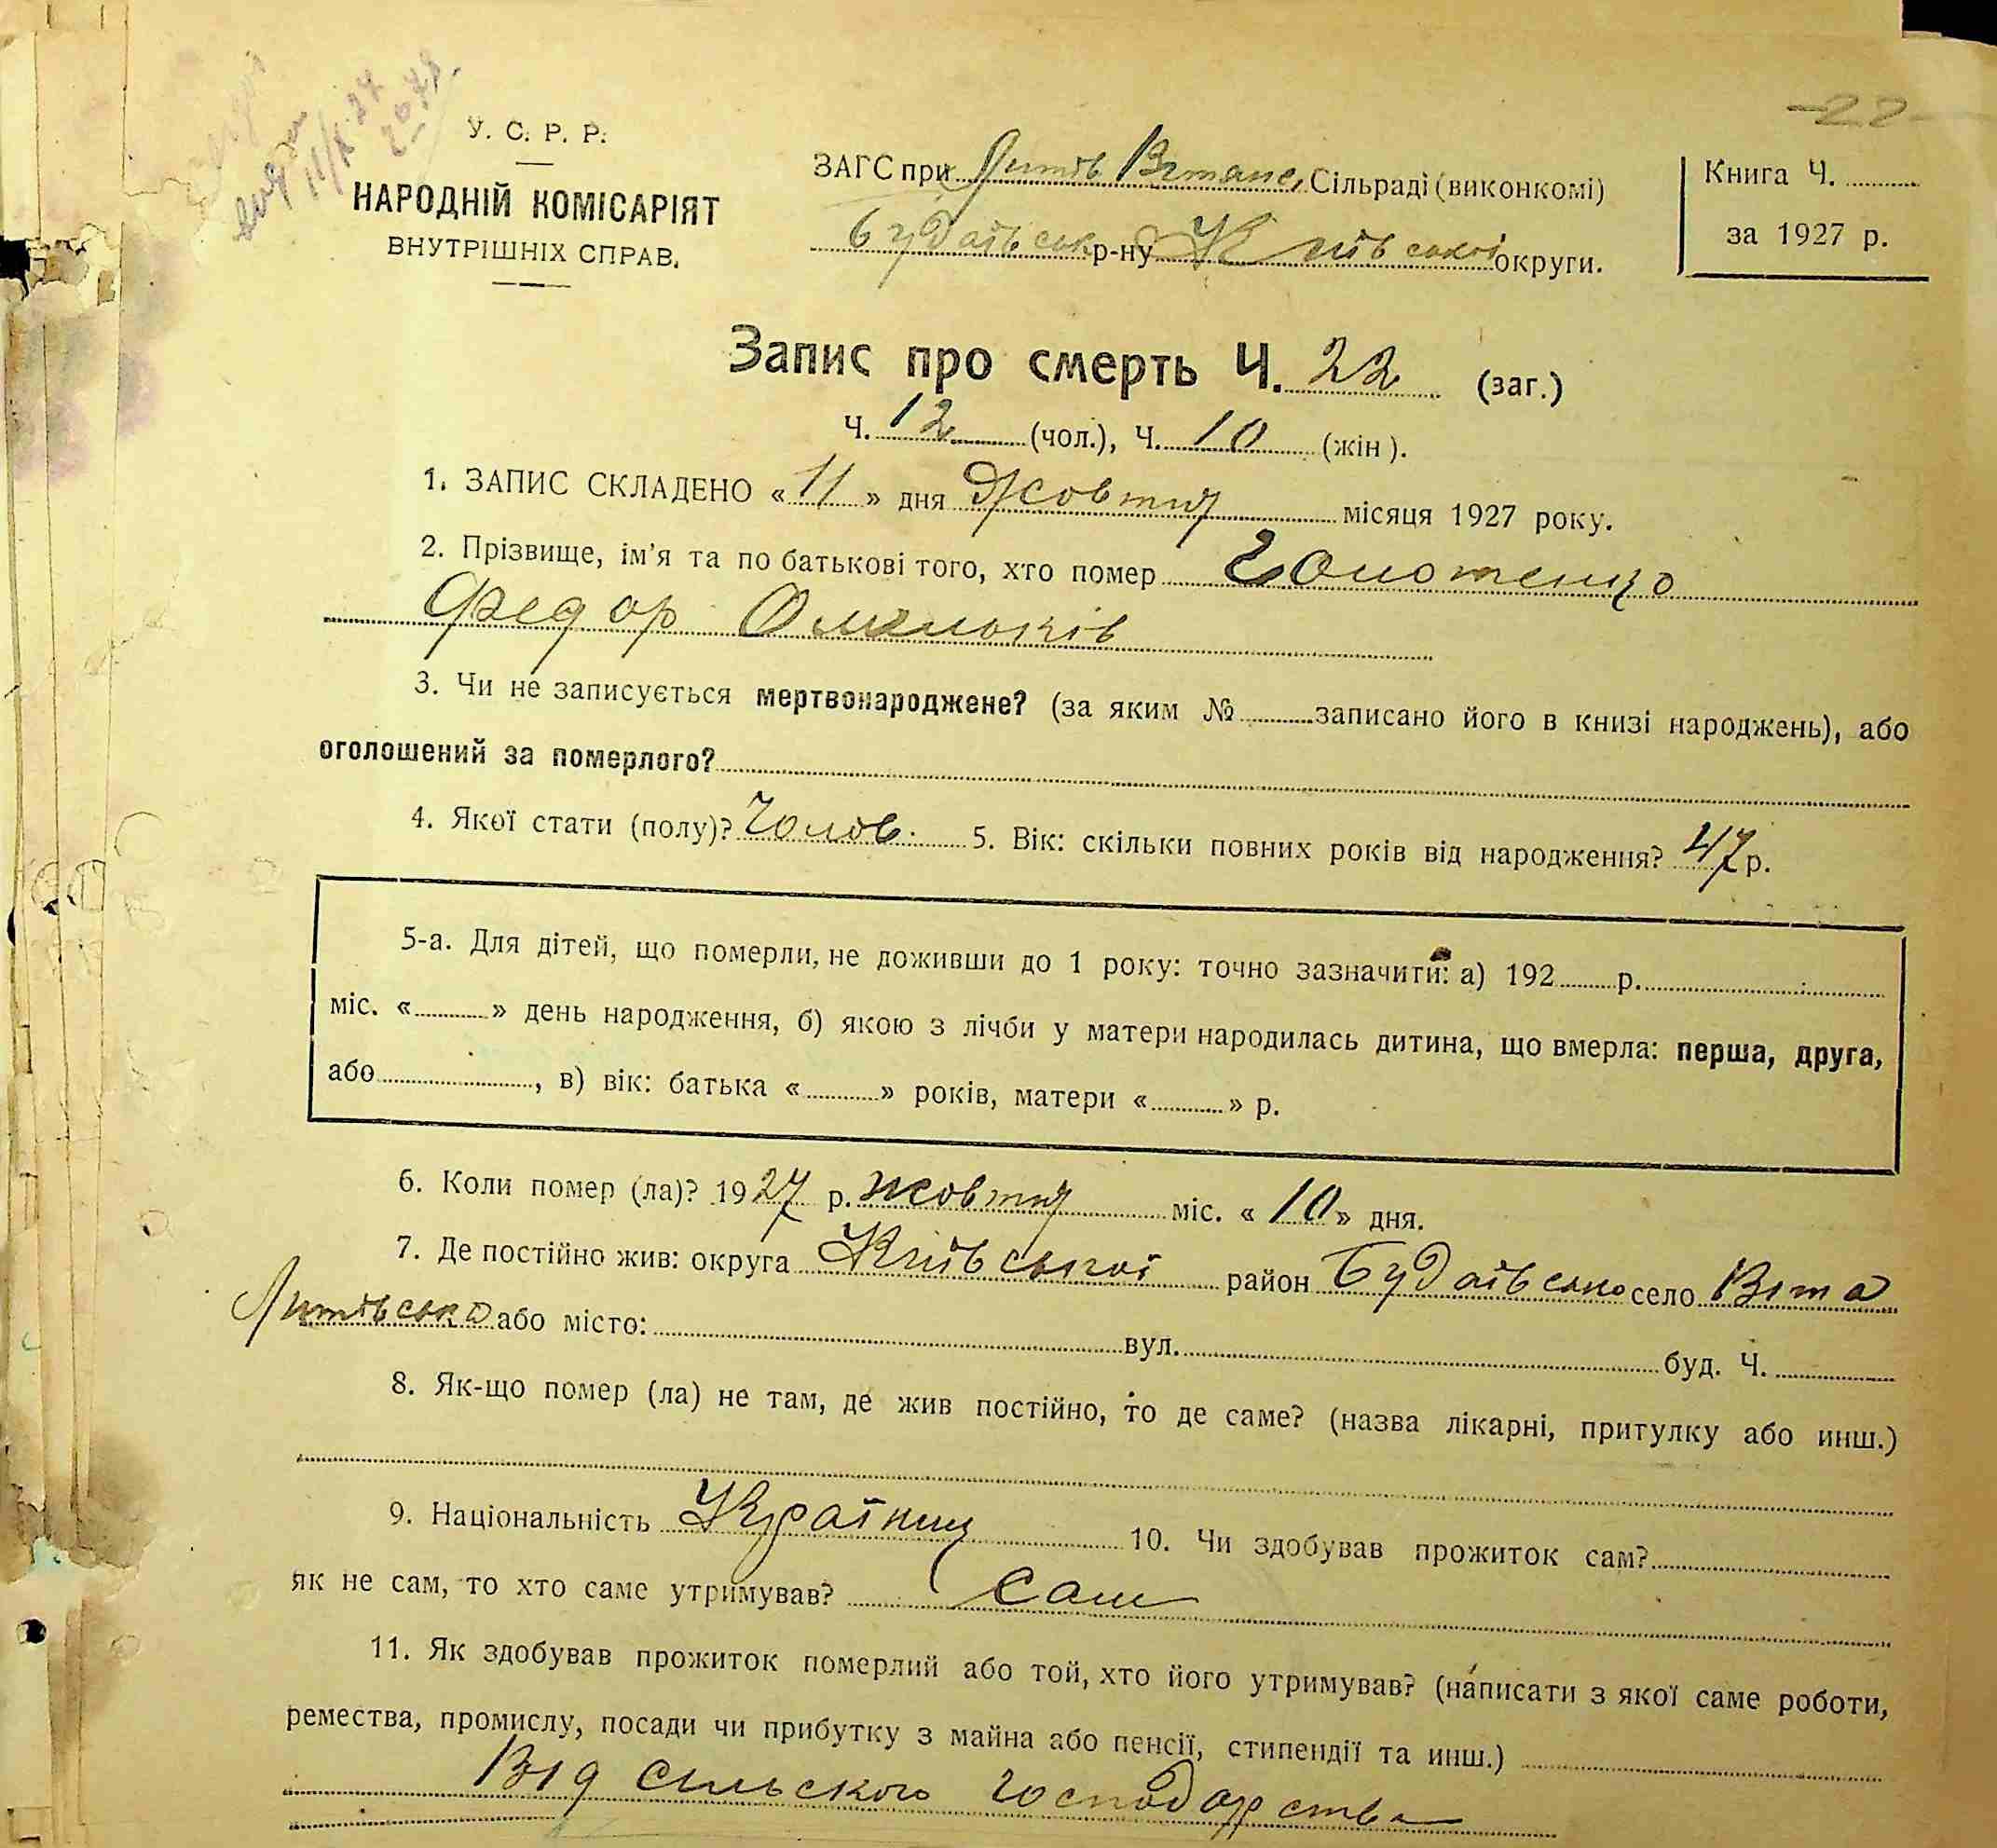 -22-
У. С. Р. Р.
НАРОДНІЙ КОМІСАРІЯТ
ВНУТРІШНІХ СПРАВ.
ЗАГС при Литів Вітанс, Сільраді (виконкомі)
Будаївськ р-ну Київської округи.
Книга Ч.
за 1927 р.
Запис про смерть Ч. 22 (заг.)
Ч. 12 (чол.), Ч. 10 (жін).
1. ЗАПИС СКЛАДЕНО «11» дня Жовтня місяця 1927 року.
2. Прізвище, ім'я та по батькові того, хто помер
Федор Омельків
3. Чи не записується мертвонароджене? (за яким № записано його в книзі народжень), або
оголошений за померлого?
4. Якої стати (полу)? Чолов. 5. Вік: скільки повних років від народження? 47 р.
5-а. Для дітей, що померли, не доживши до 1 року: точно зазначити: а) 192 р.
міс. « » день народження, б) якою з лічби у матери народилась дитина, що вмерла: перша, друга,
або , в) вік: батька « » років, матери « » р.
6. Коли помер (ла)? 1927 р. жовтня міс. «10» дня.
7. Де постійно жив: округа Київської район Будаївсько село Віта
Литівська або місто: вул. буд. Ч.
8. Як-що помер (ла) не там, де жив постійно, то де саме? (назва лікарні, притулку або инш.)
9. Національність Українц 10. Чи здобував прожиток сам?
як не сам, то хто саме утримував? Сам
11. Як здобував прожиток померлий або той, хто його утримував? (написати з якої саме роботи,
ремества, промислу, посади чи прибутку з майна або пенсії, стипендії та инш.)
Від сільского господарства